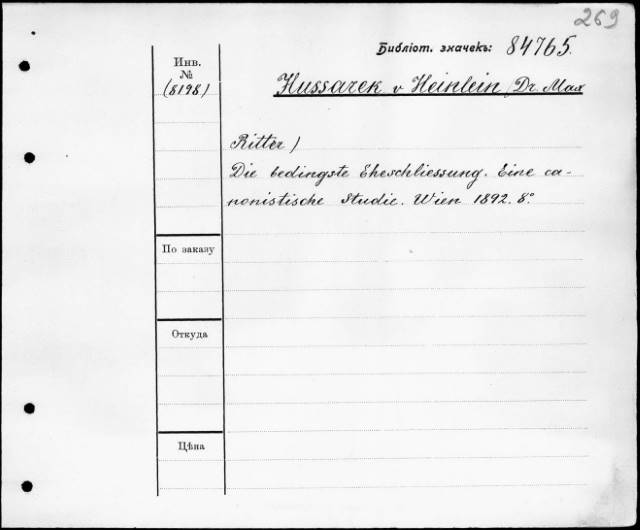 269
Библіот. значекъ: 84765.
Инв.
№
(8198)
Hussarek v Heinlein (Dr. Max
Ritter)
Die bedingste Eheschliessung. Eine ca-
nonistische Studie. Wien 1892. 8°.
По заказу
Откуда
Цѣна